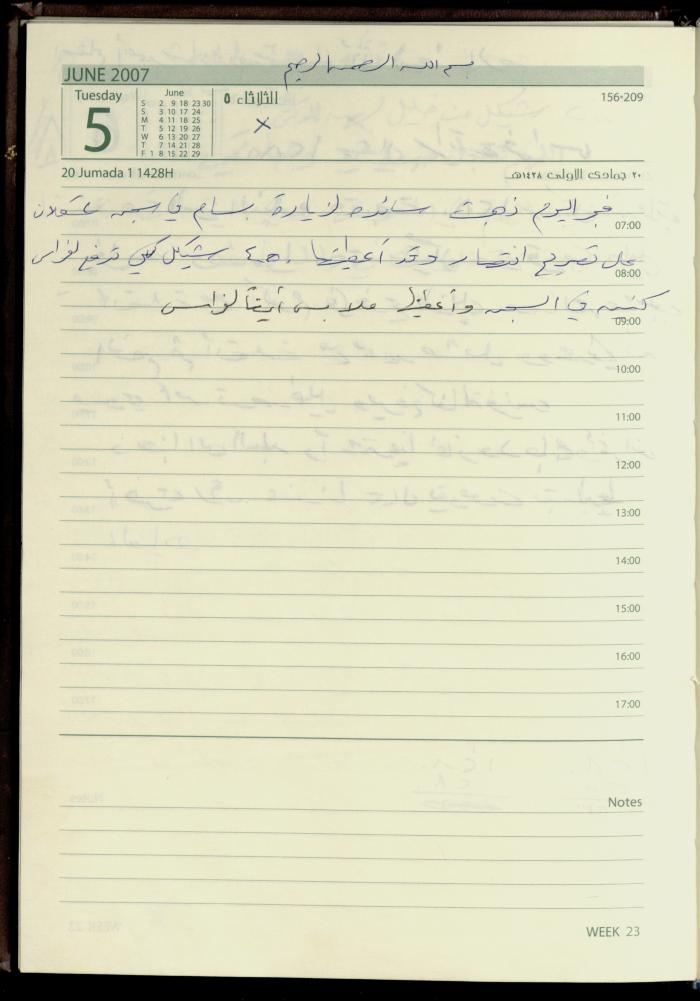 بسم الله الرحمن الرحيم
JUNE 2007
Tuesday
5
June
S 2 9 18 23 30
S 3 10 17 24
M 4 11 18 25
T 5 12 19 26
W 6 13 20 27
T 7 14 21 28
F 1 8 15 22 29
الثلاثاء ٥
×
156-209
20 Jumada 1 1428H
٢٠ جمادى الاولى ١٤٢٨هـ
فجر اليوم ذهبت سائده لزيارة بسام في سجن عسقلان
07:00
على تصريح انتصار وقد أعطيتها ٤٥٠ شيكل لكي تدفع لفراس
08:00
كنتينه في السجن وأعطيتها ملابس أيضاً لفراس
09:00
10:00
11:00
12:00
13:00
14:00
15:00
16:00
17:00
Notes
WEEK 23